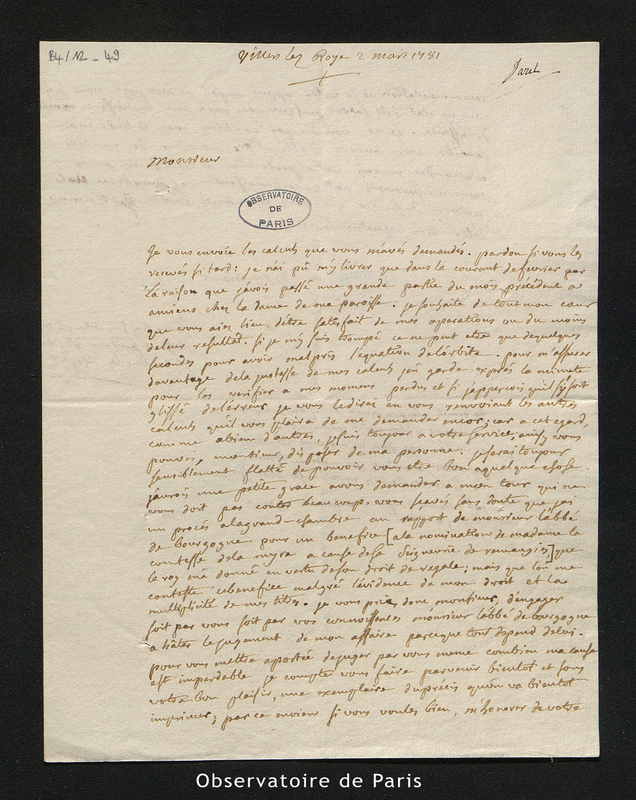 B4/12 - 49
Villers lez Roye 2 mars 1781
Monsieur
OBSERVATOIRE
DE
PARIS
Je vous envoie les calculs que vous m'avés demandés. pardon si vous les
recevés si tard: je n'ai pû m'y livrer que dans le courant de fevrier par
la raison que j'avois passé une grande partie du mois précédent a
amiens chez la dame de ma paroisse. je souhaite de tout mon cœur
que vous aiés lieu d'être satisfait de mes operations ou du moins
de leur resultat. si je m'y suis trompé ce ne peut etre que de quelques
secondes pour avoir mal pris l'equation de l'orbite. pour m'assurer
davantage de la justesse de mes calculs j'en garde exprès la minute
pour les verifier a mes momens perdus et si j'apperçois qu'il s'y soit
glissé de l'erreur je vous le dirai en vous renvoiant les autres
calculs qu'il vous plaira de me demander encor; car a cet egard,
comme a bien d'autres, je suis toujour a votre service, ainsi vous
pouvés, monsieur, disposer de ma personne. je serai toujour
sensiblement flatté de pouvoir vous etre bon a quelque chose.
j'aurois une petite grace a vous demander a mon tour qui ne
vous doit pas couter beaucoup. vous scavés sans doute que j'ai
un procès a la grand-chambre au rapport de monsieur l'abbé
de bourgogne pour un benefice [a la nomination de madame la
comtesse de la myre a cause de sa seigneurie de] que
le roy m'a donné en vertu de son droit de regale; mais que l'on me
conteste ce benefice malgré l'évidence de mon droit et la
multiplicité de mes titres. je vous prie donc monsieur, d'engager
soit par vous soit par vos connoissances monsieur l'abbé de bourgogne
a hâter le jugement de mon affaire parceque tout depend de lui.
pour vous mettre a portée de juger par vous meme combien ma cause
est imperdable je compte vous faire parvenir bientot et sous
votre bon plaisir, une exemplaire du précis qu'on va bientot
imprimer; par ce moien si vous voulés bien, m'honorer de votre
Observatoire de Paris